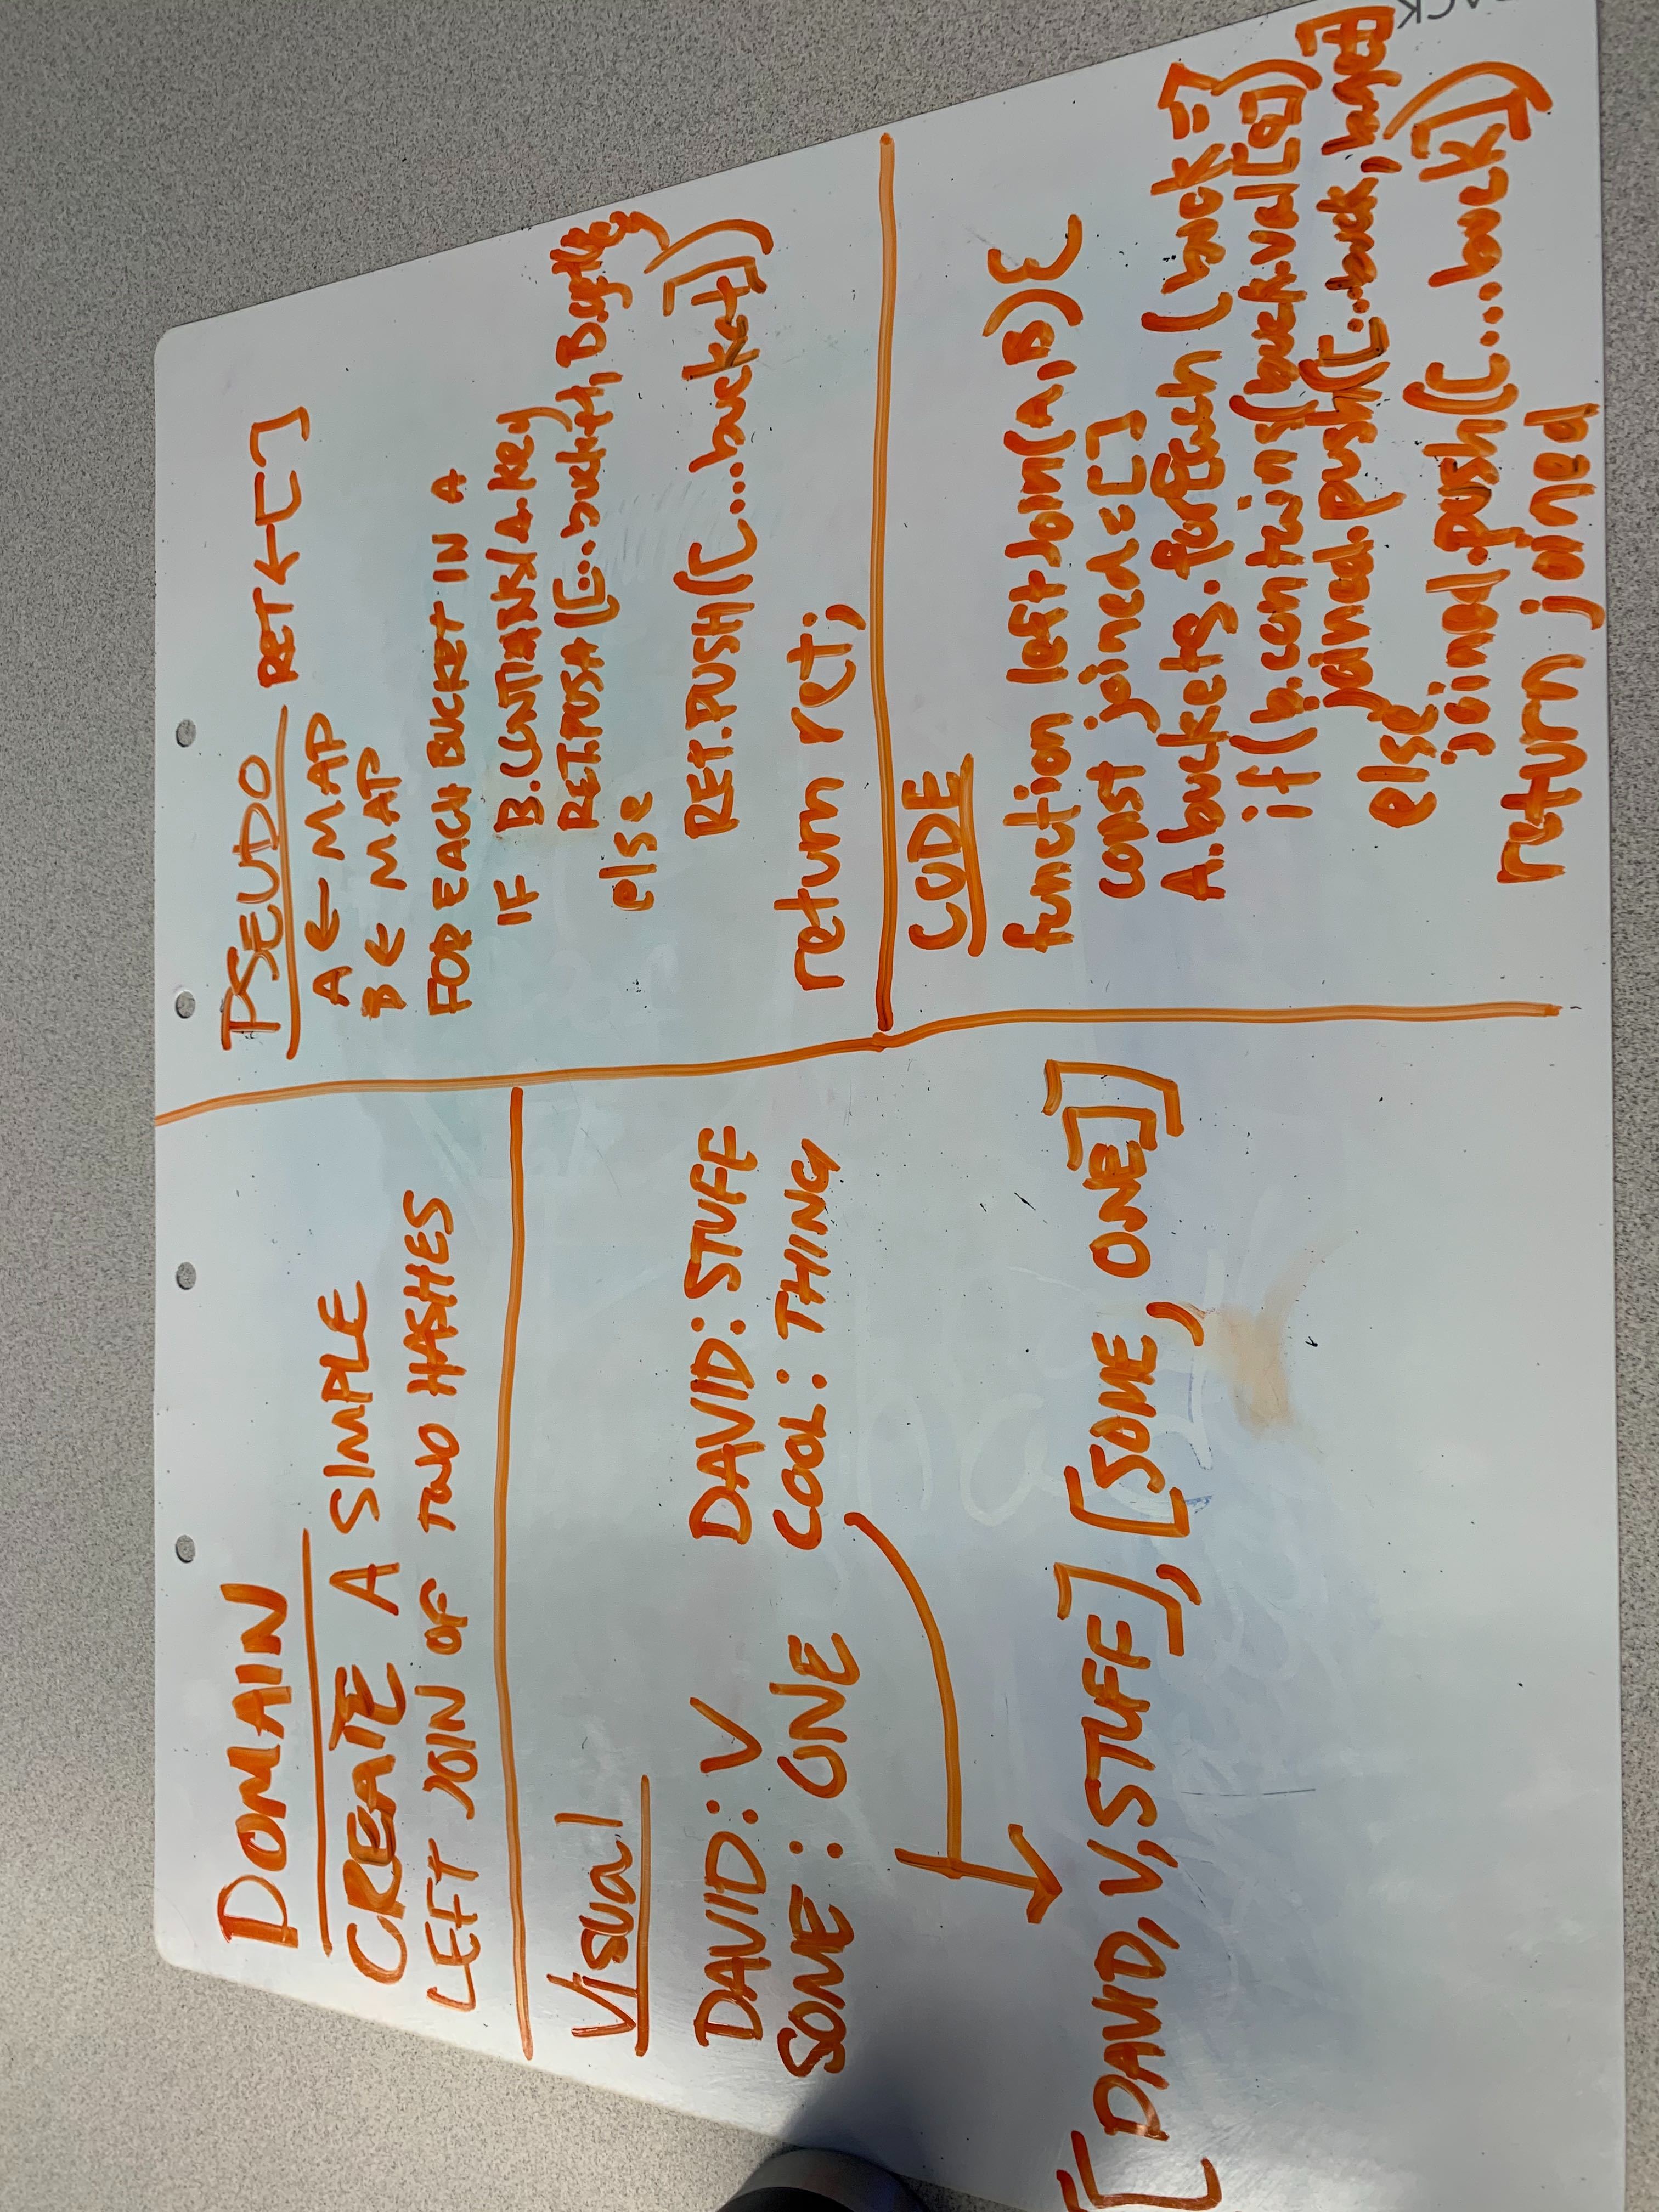 DOMAIN
CREATE A SIMPLE
LEFT JOIN OF TWO HASHES
Visual
DAVID: V DAVID: STUFF
SOME: ONE COOL: THING
[DAVID, V, STUFF], [SOME, ONE]]
PSEUDO RET ← []
A ← MAP
B ← MAP
FOR EACH BUCKET IN A
IF B.CONTIANS(A.key)
RET.PUSH([...bucket, B.get
else
RET.PUSH([...bucket])
return ret;
CODE
function leftJoin(A,B){
const joined = []
A.buckets.forEach(buck =>
if (b.contains(buck.val[0])
joined.push([...buck,
else
joined.push([...buck])
return joined